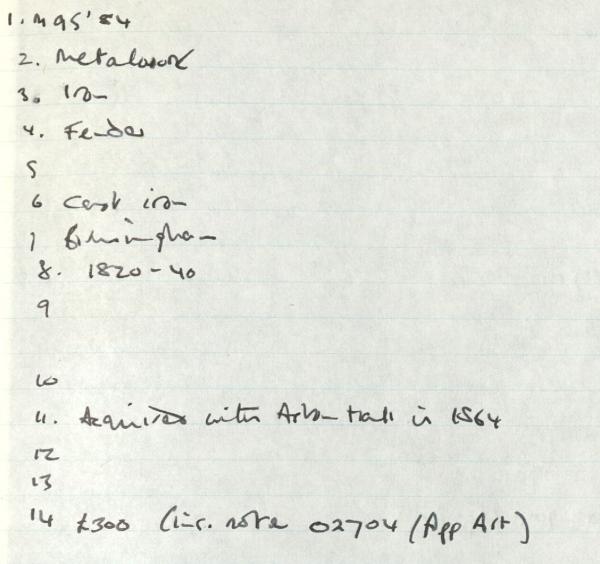 1. M95'84
2. Metalwork
3. Iron
4. Fender
5
6 Cast iron
7 Birmingham
8. 1820-40
9
10
11. Acquired with Aston Hall in 1864
12
13
14 £300 (inc. note 02704 (App Art)